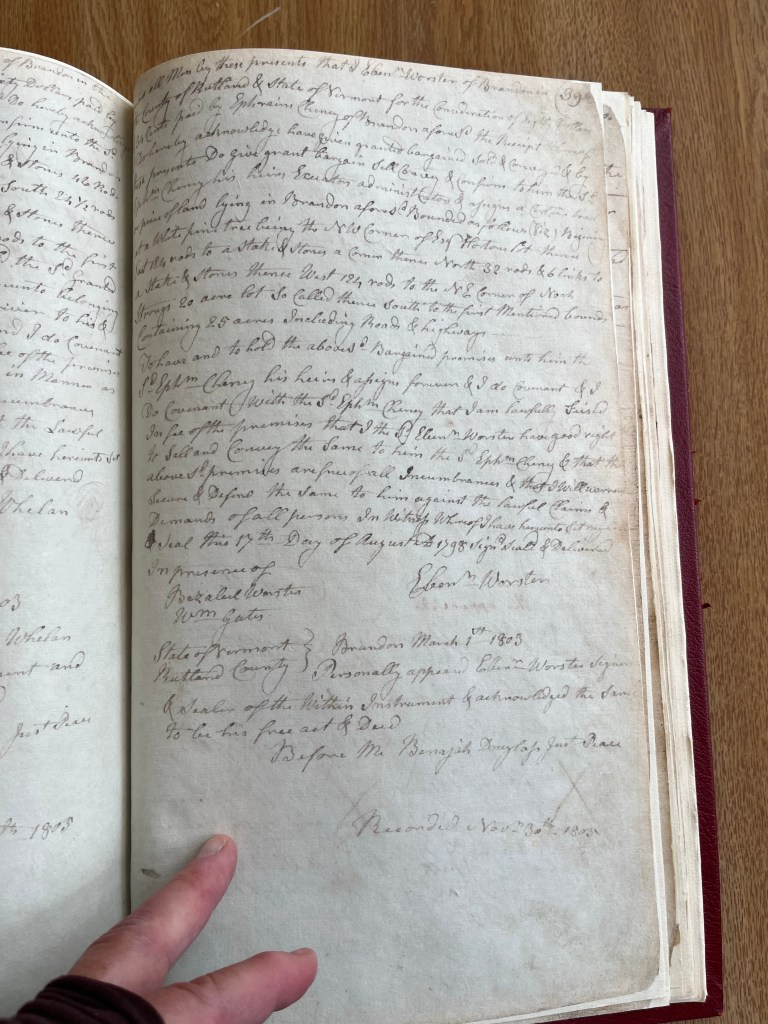 of Brandon in the
Dollars paid by
Do hereby acknowledge
confirm unto the Sd
lying in Brandon
& Stones 40 Rods
South 24 1/2 rods
& Stones thence
rods to the first
the Sd granted
unto belonging
to his &
and I do Covenant
of the premises
in Manner as
Incumbrances
the Lawful
I have hereunto Set
& Deliverd
Whelan
03
Whelan
ment and
Just Peace
1803
39
all Men by these presents that I Ebenr Worster of Brandon in
County of Rutland & State of Vermont for the Consideration of Eight Dollars
34 Cents paid by Ephraim Cheney of Brandon aforesd the Receipt whereof
I do hereby acknowledge have given granted bargained Sold & Conveyed & by
these presents Do give grant bargain Sell Convey & Confirm to him the Sd
Cheney his heirs Executors administrators & assigns a Certain tract
or piece of land lying in Brandon aforesd Bounded as follows (Viz) Begining
at a White pine tree being the NW Corner of Esqr Hortons Lot thence
East 124 rods to a Stake & Stones a Corner thence North 32 rods & 6 links to
a Stake & Stones thence West 124 rods to the NE Corner of Noah
Strongs 20 acre lot So Called thence South to the first Mentioned bounds
Containing 25 acres Including Roads & highways
To have and to hold the abovesd Bargaind premises unto him the
Sd Ephm Cheney his heirs & assigns forever & I do Covenant & I
Do Covenant With the Sd Ephm Cheney that I am Lawfully Seized
In fee of the premises that I the Sd Ebenr Worster have good right
to Sell and Convey the Same to him the Sd Ephm Cheney & that the
above Sd premises are free of all Incumbrances & that I Will warrant
Secure & Defend the Same to him against the Lawful Claims &
Demands of all persons In Witness Whereof I have hereunto Set my
& Seal this 17th Day of August AD 1798 Signd Seald & Delivered
In presence of
Bezaleel Worster
Ebenr Worster
Wm Gates
State of Vermont } Brandon March 1st 1803
Rutland County } Personally appeared Ebenr Worster Signer
& Sealer of the Within Instrument & acknowledged the Same
To be his free act & Deed
Before Me Benajah Douglass Just Peace
Recorded Novr 30th 1803